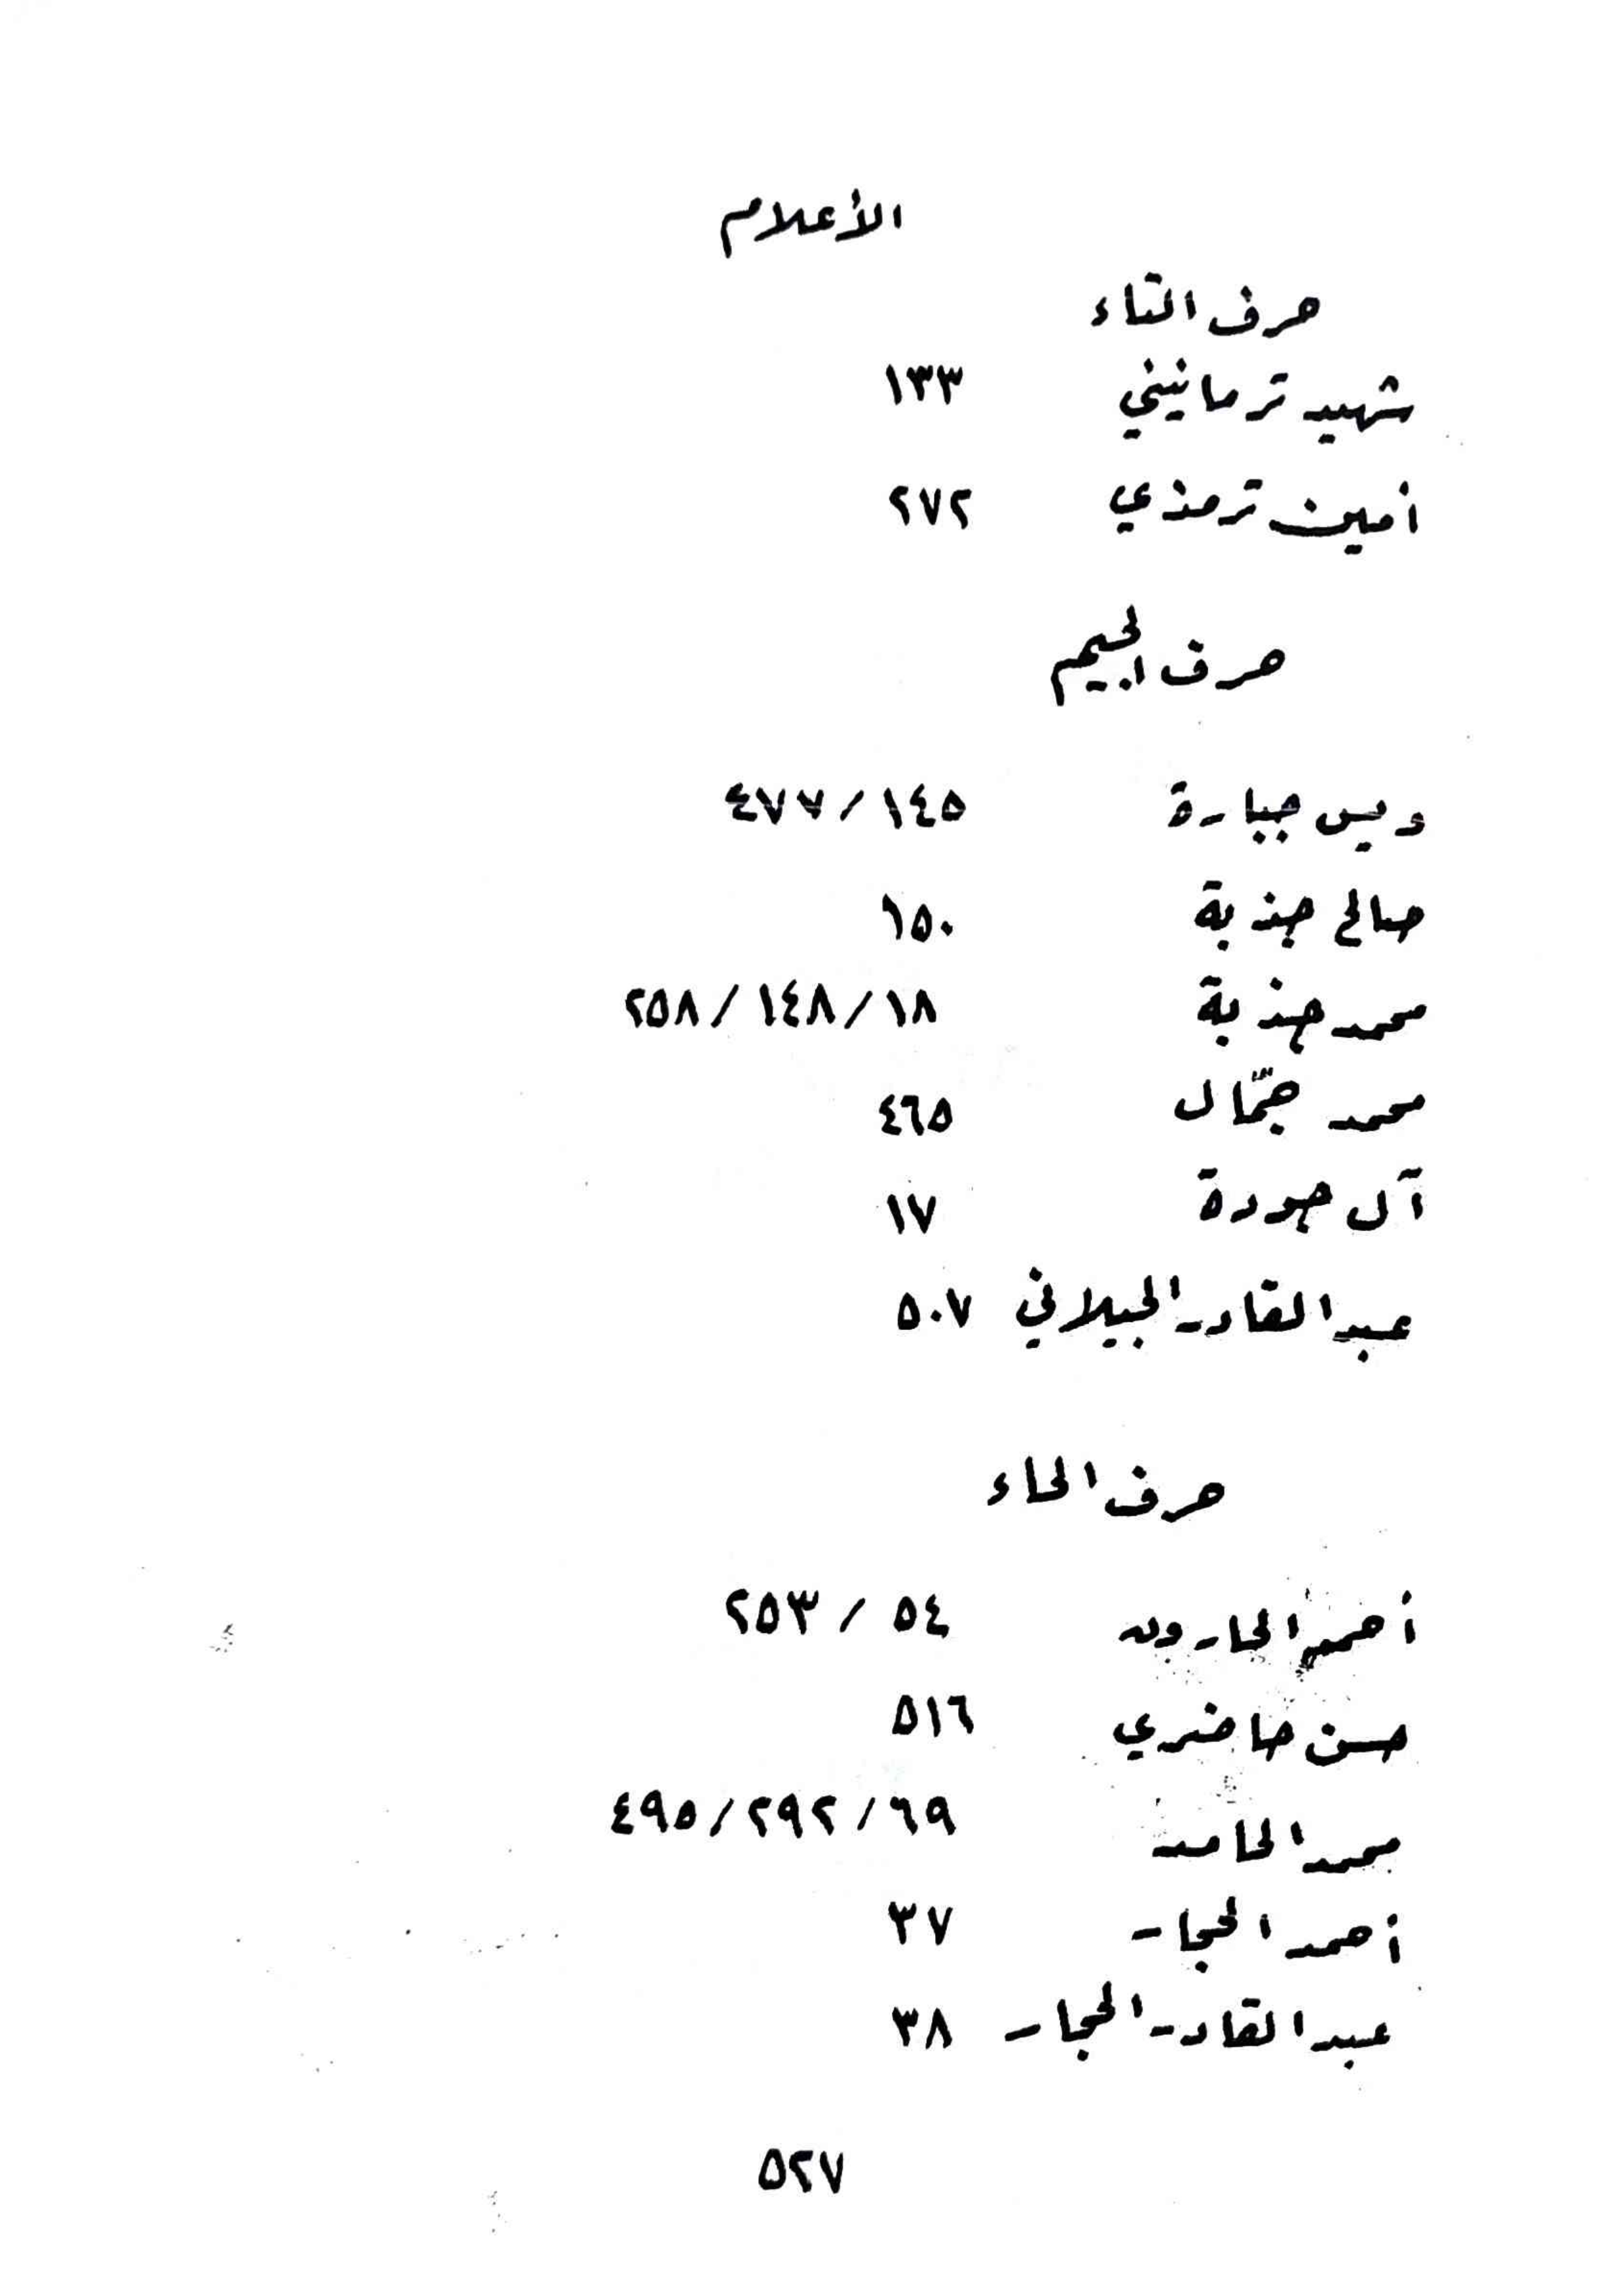 الأعلام
حرف التاء
شهيد ترمانيني ١٣٣
أمين ترمذي ٢٧٢
حرف الجيم
ويس جبارة ١٤٥/٤٧٧
صالح جذبة ١٥٠
محمد جذبة ١٨/١٤٨/٢٥٨
محمد جمّال ٤٦٥
آل جودة ١٧
عبد القادر الجيلاني ٥٠٧
حرف الحاء
أحمد الحارون ٥٤/٢٥٣
حسن حاضري ٥١٦
محمد الحامد ٦٩/٢٩٢/٤٩٥
أحمد الحجار ٣٧
عبد القادر الحجار ٣٨
٥٢٧